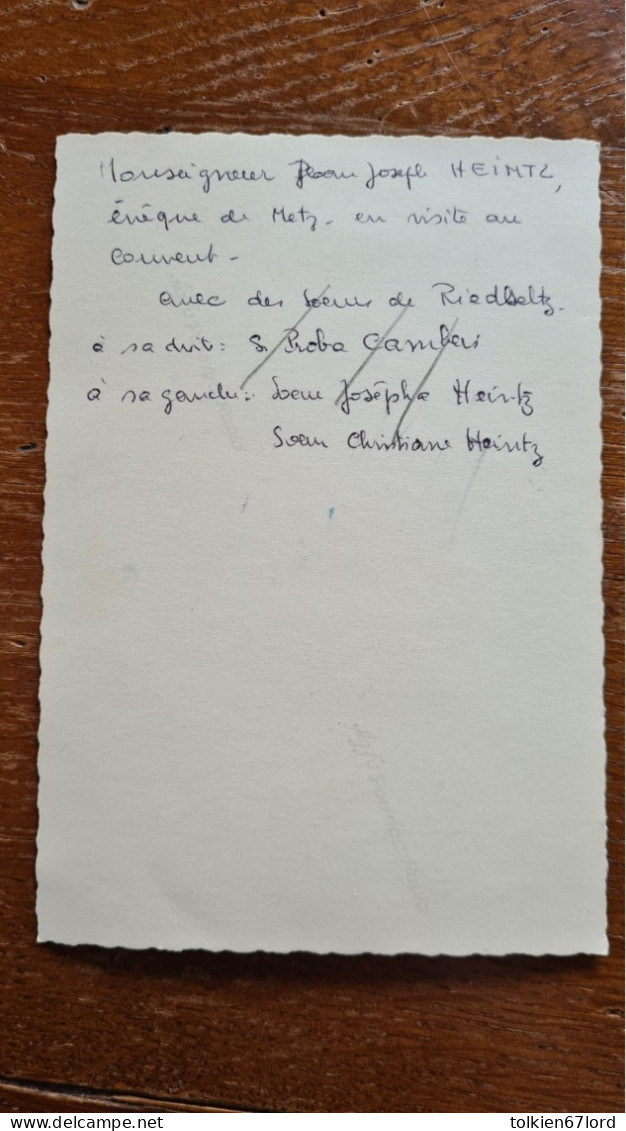 Monseigneur Jean Joseph HEINTZ,
évêque de Metz - en visite au
couvent -
avec des soeurs de Riedseltz -
à sa droite: Sr Proba
à sa gauche: Soeur Josépha Heintz
Soeur Christiane Heintz
www.delcampe.net
tolkien67lord